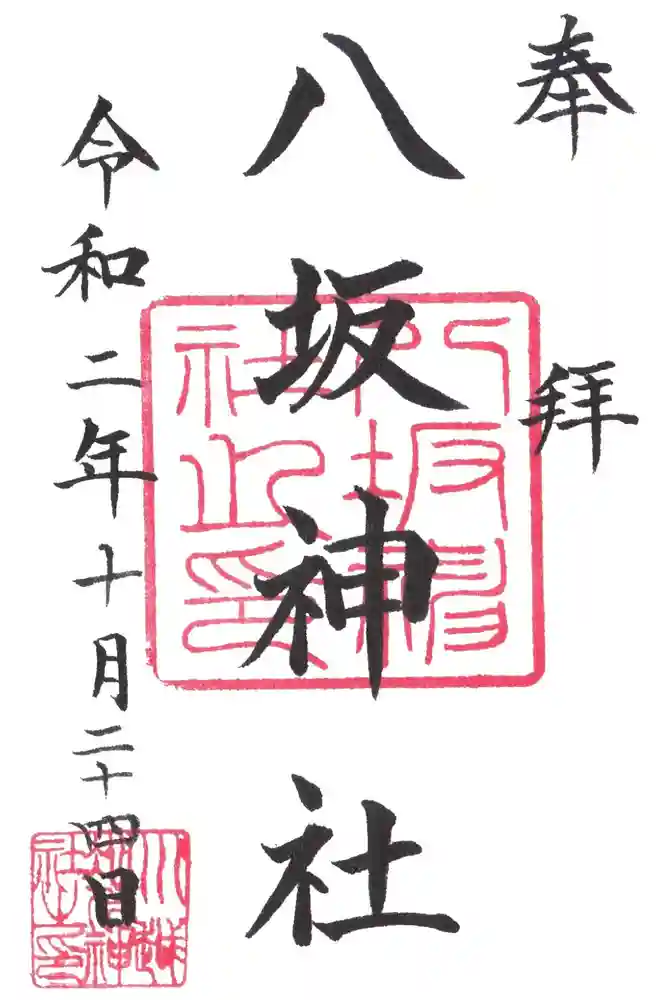 奉拝
八坂神社
令和二年十月二十四日
八坂神社之印